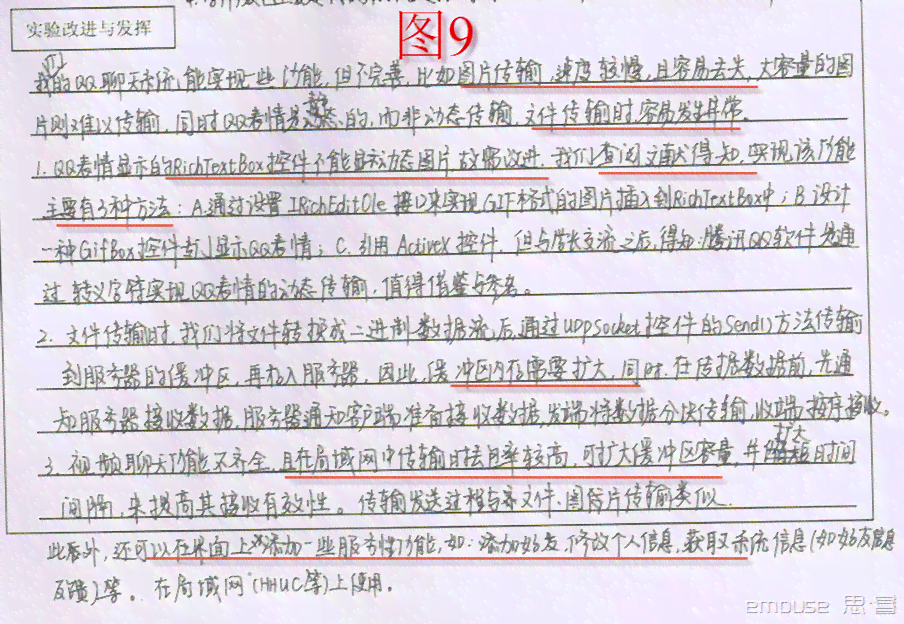 实验改进与发挥
图9
我们的QQ聊天系统,能实现一些功能,但不完善,比如图片传输,速度较慢,且容易丢失,大容量的图
片则难以传输,同时QQ表情是静态的,而非动态传输,文件传输时,容易发生异常。
1. QQ表情显示的RichTextBox控件不能显示动态图片,故需改进,我们查阅文献得知,实现该功能
主要有3种方法:A.通过设置IRichEditOle接口来实现GIF格式的图片插入到RichTextBox中;B.设计
一种GifBox控件来显示QQ表情;C.引用ActiveX控件.但与学长交流之后,得知:腾讯QQ软件是通
过转义字符实现QQ表情的动态传输,值得借鉴与参考。
2. 文件传输时,我们将文件转换成二进制数据流后,通过UDPSocket控件的Send()方法传输
到服务器的缓冲区,再接入服务器,因此,缓冲区内存需要扩大,同时,在传据数据前,先通
知服务器接收数据,服务器通知客户端准备接收数据,发端将数据分块传输,收端按序接收。
3. 视频聊天功能不齐全,且在局域网中传输时丢包率较高,可扩大缓冲区容量,并扩大时间
间隔,来提高其接收有效性。传输发送过程与文件、图片传输类似.
此外,还可以在界面上添加一些服务性功能,如:添加好友,修改个人信息,获取系统信息(如好友信息
反馈)等。在局域网(HHUC等)上使用。
emouse 思·睿